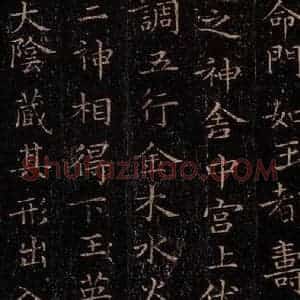 命門如王者壽
之神舍中宮上伐
調五行金木水火
二神相得下玉英
大陰藏其形出入
Shufaziliao.com